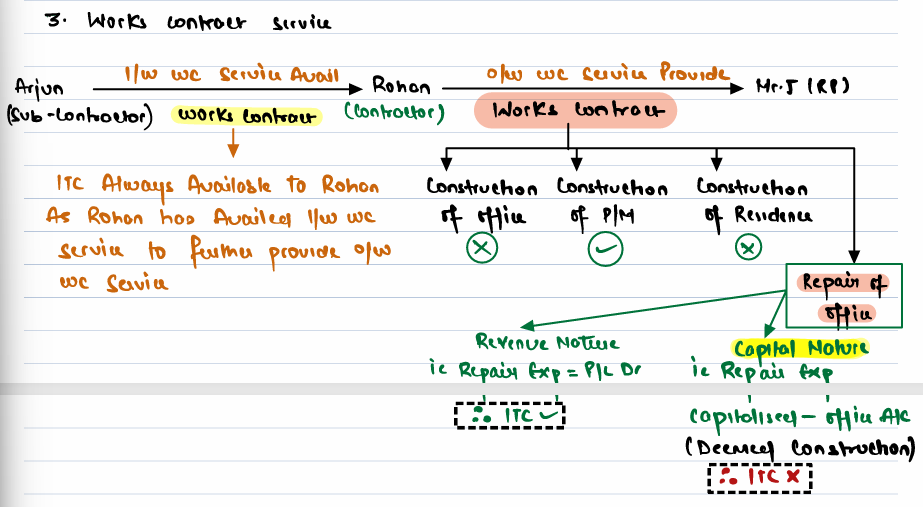 3. Works contract service
I/w wc Service Avail
O/w wc Service Provide
Arjun
Rohan
Mr. J (RP)
(Sub-Contractor)
works contract
(Contractor)
Works contract
ITC Always Available to Rohan
As Rohan has Availed I/w wc
service to further provide o/w
wc Service
Construction
of office
Construction
of P/M
Construction
of Residence
Repair of
office
Revenue Nature
ie Repair Exp = P/L Dr
∴ ITC ✓
Capital Nature
ie Repair Exp
Capitalised - office A/c
(Deemed Construction)
∴ ITC X